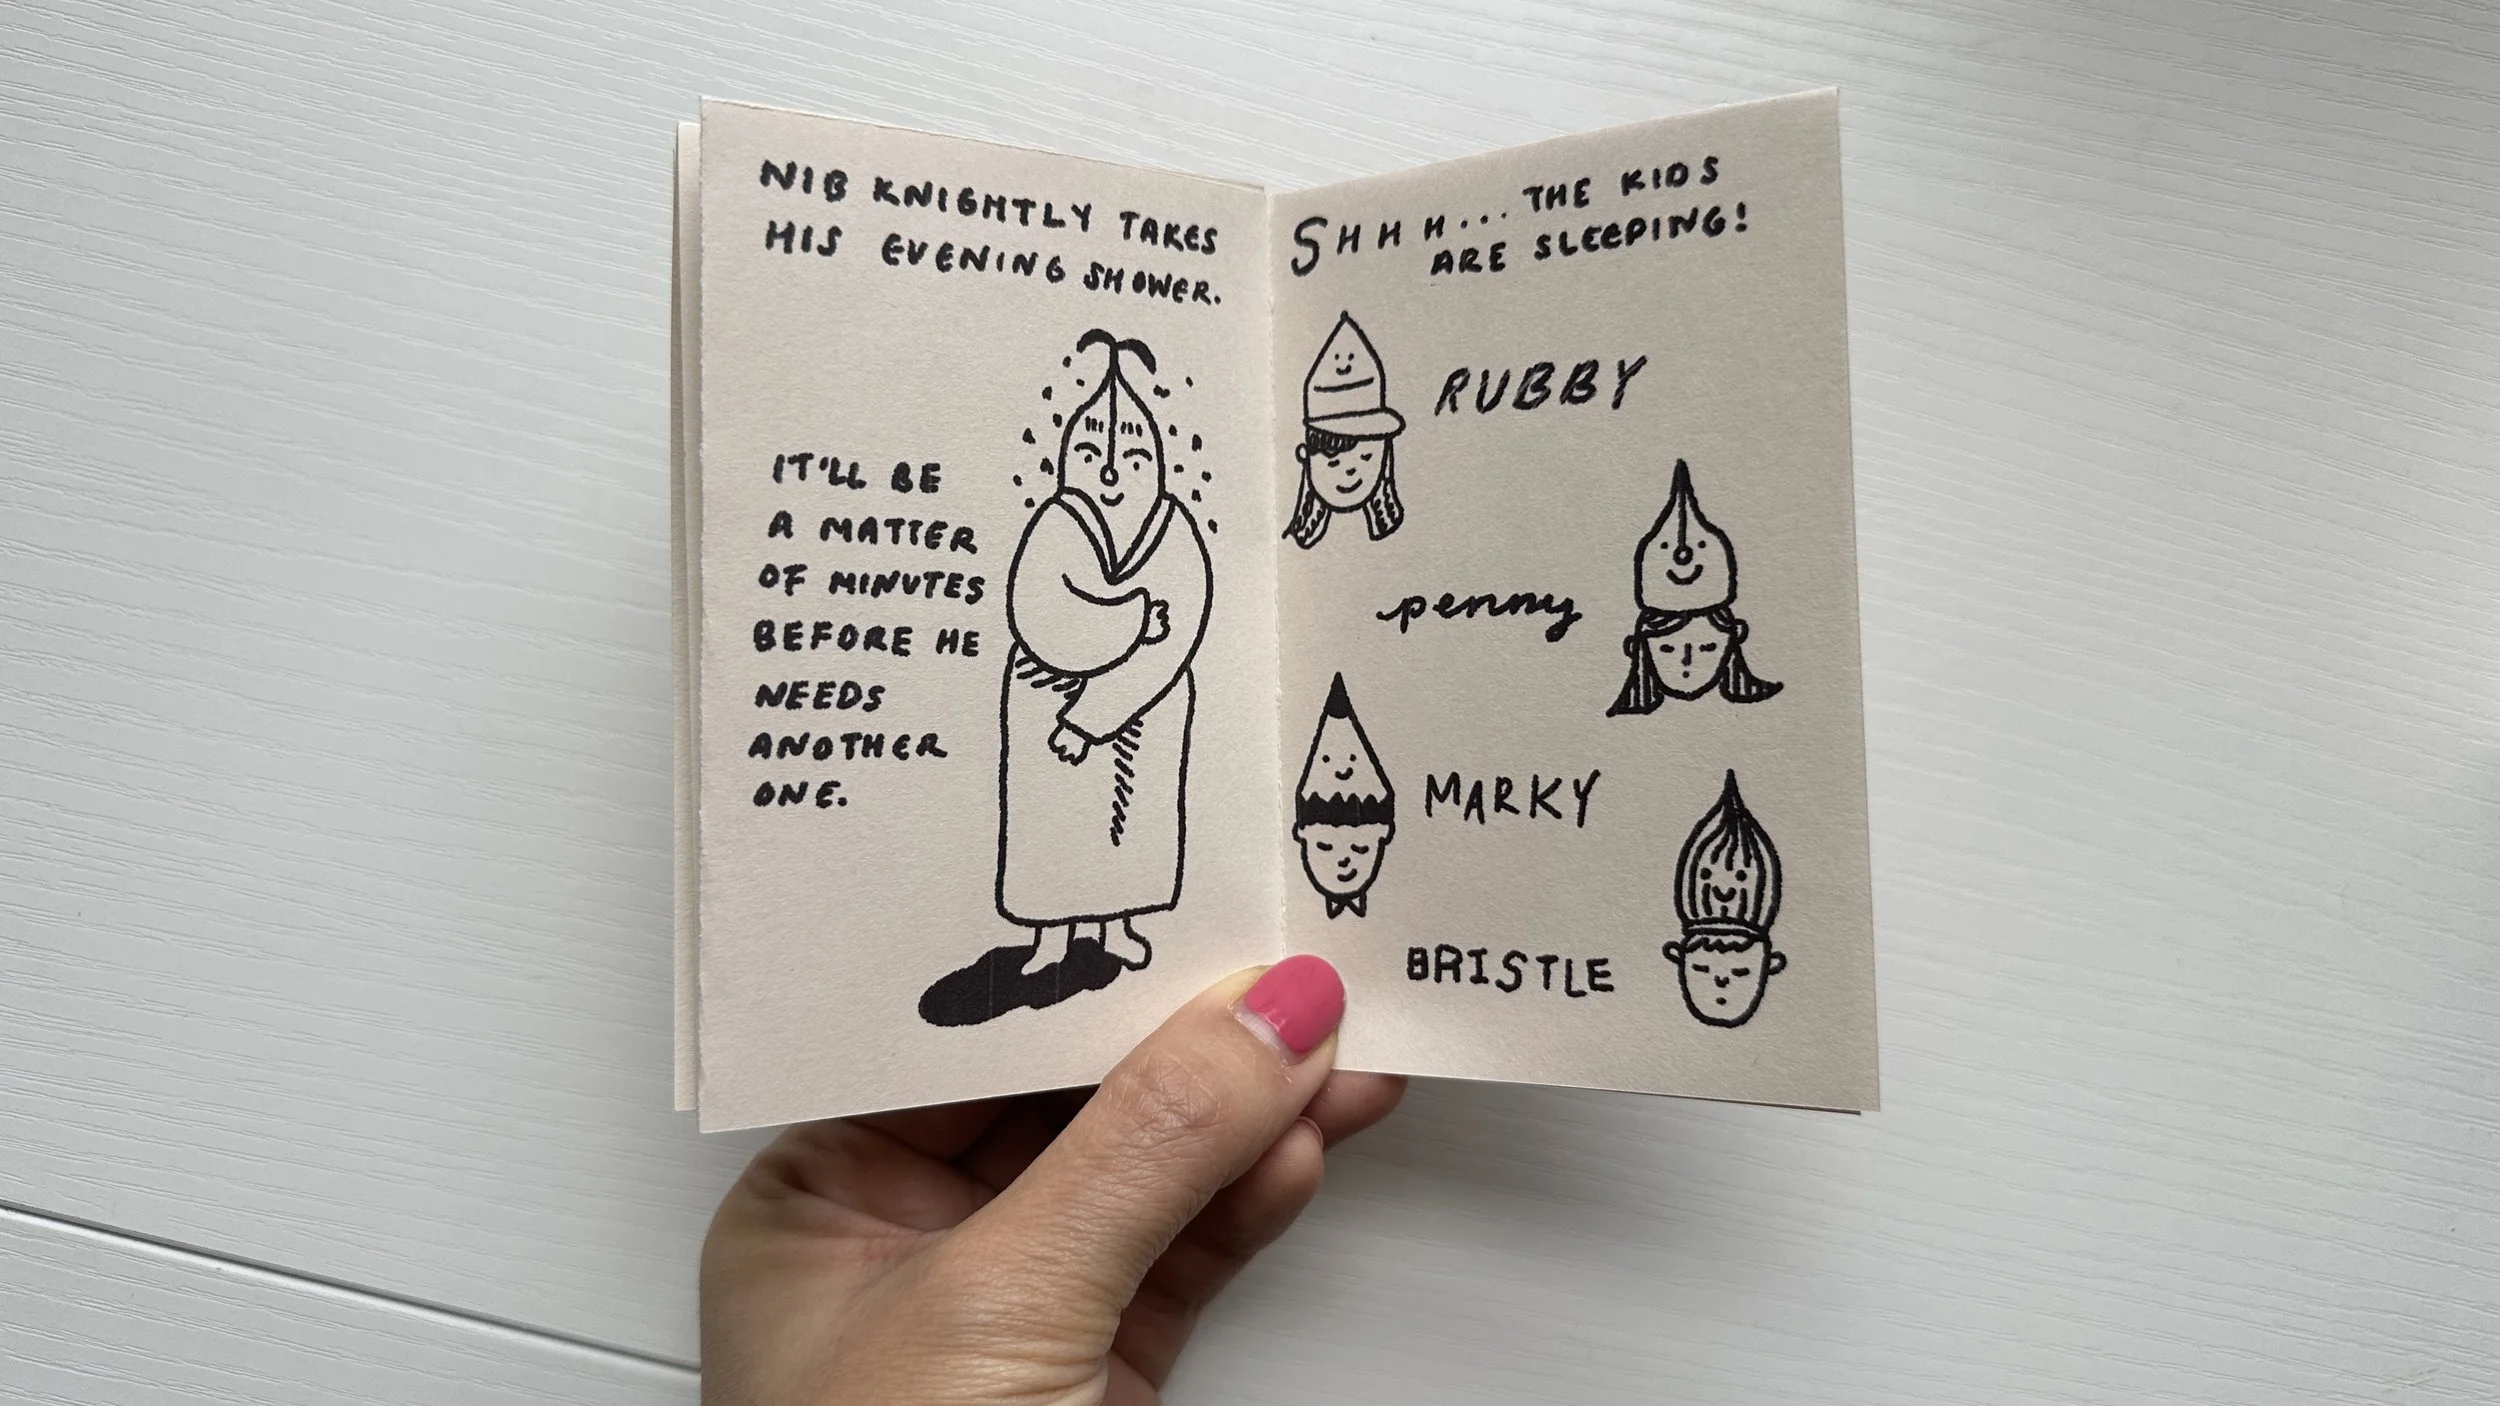 NIB KNIGHTLY TAKES
HIS EVENING SHOWER.
IT'LL BE
A MATTER
OF MINUTES
BEFORE HE
NEEDS
ANOTHER
ONE.
SHHH... THE KIDS
ARE SLEEPING!
RUBBY
penny
MARKY
BRISTLE